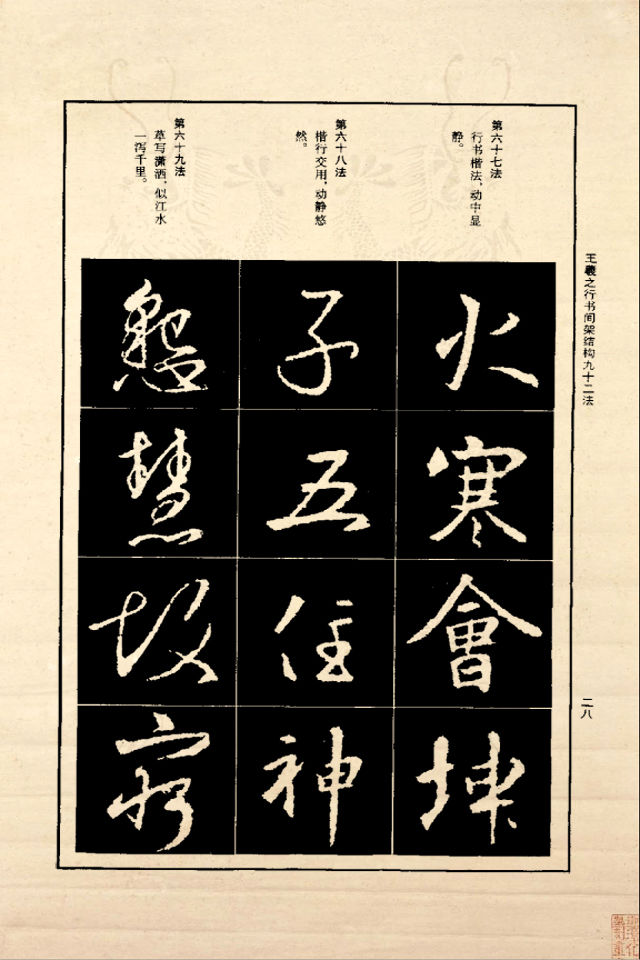 王羲之行书间架结构九十二法
第六十七法
行书楷法，动中显
静。
火
寒
會
埭
第六十八法
楷行交用，动静悠
然。
子
五
住
神
第六十九法
草写潇洒，似江水
一泻千里。
慧
二八